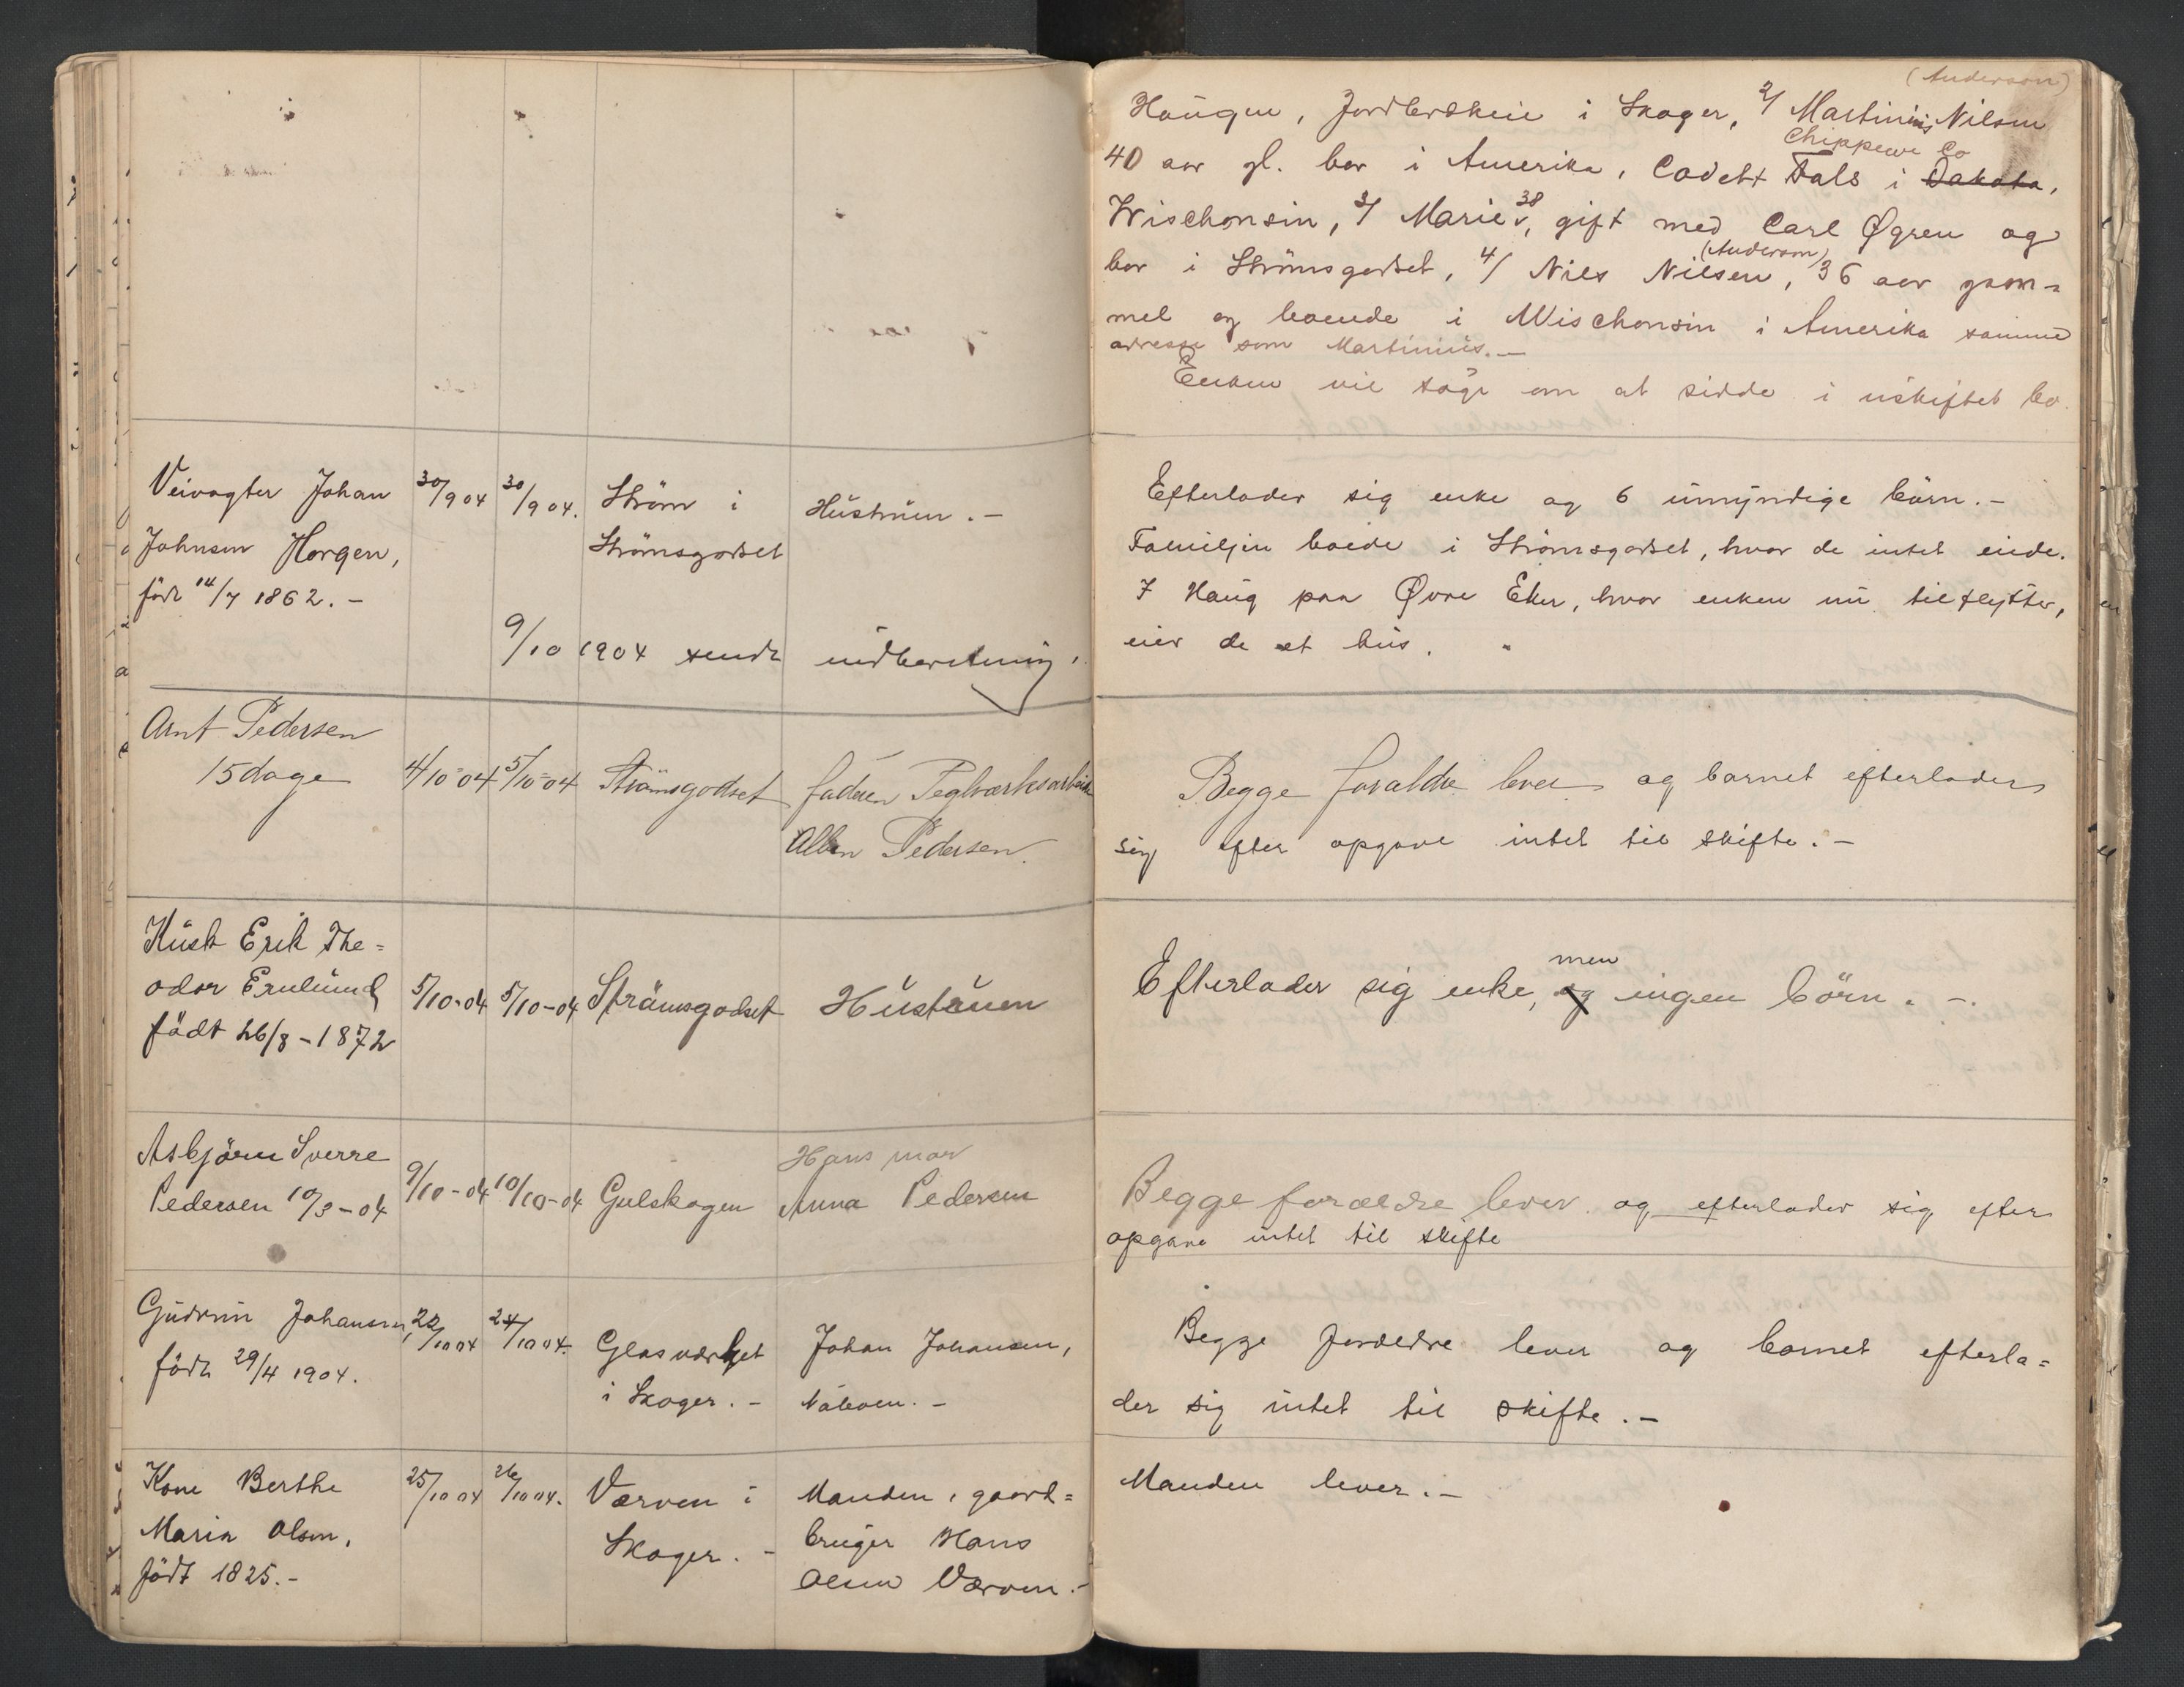 (Anderson)
Haugen, Jordbrækkeie i Skoger, 2/ Martinius Nilsen
Chippewe Co
40 aar gl. bor i Amerika, Cadelt Fals i Dakota,
Wischonsin, 3/ Marie 38, gift med Carl Øgren og
(Anderson)
bor i Strömsgodset, 4/ Nils Nilsen, 36 aar gam=
mel og boende i Wischonsin i Amerika samme
adresse som Martinius.-
Enken vil søge om at sidde i uskiftet bo.
Veivogter Johan
Johnsen Horgen,
född 14/7 1862.-
30/9 04
30/9 04.
Ström i
Strömsgodset
Hustruen.-
9/10 1904 sendt indberetning.
Efterlader sig enke og 6 umyndige börn.-
Familjen boede i Strömsgodset, hvor de intet eiede.
I Haug paa Øvre Eker, hvor enken nu tilflytter,
eier de et hus.
Arnt Pedersen
15 dage
4/10-04
5/10-04
Strömsgodset
faderen Teglværksarbeider
Albin Pedersen.
Begge foraldre lever og barnet efterlader
sig efter opgave intet til skifte.-
Kusk Erik The=
odor Enlund
födt 26/8-1872
5/10-04
5/10-04
Strömsgodset
Hustruen
men
Efterlader sig enke, og ingen börn.-
Asbjörn Sverre
Pedersen 10/3-04
9/10-04
10/10-04
Gulskogen
Hans mor
Anna Pedersen
Begge forældre lever og efterlader sig efter
opgave intet til skifte
Gudrun Johansen,
född 29/4 1904.
22/10 04
24/10 04.
Glasværket
i Skoger.-
Johan Johansen,
Naboen.-
Begge forældre lever og barnet efterla=
der sig intet til skifte.-
Kone Berthe
Maria Olsen,
födt 1825.-
25/10 04
26/10 04.
Værven i
Skoger.-
Manden, gaard=
bruger Hans
Olsen Værven.-
Manden lever.-